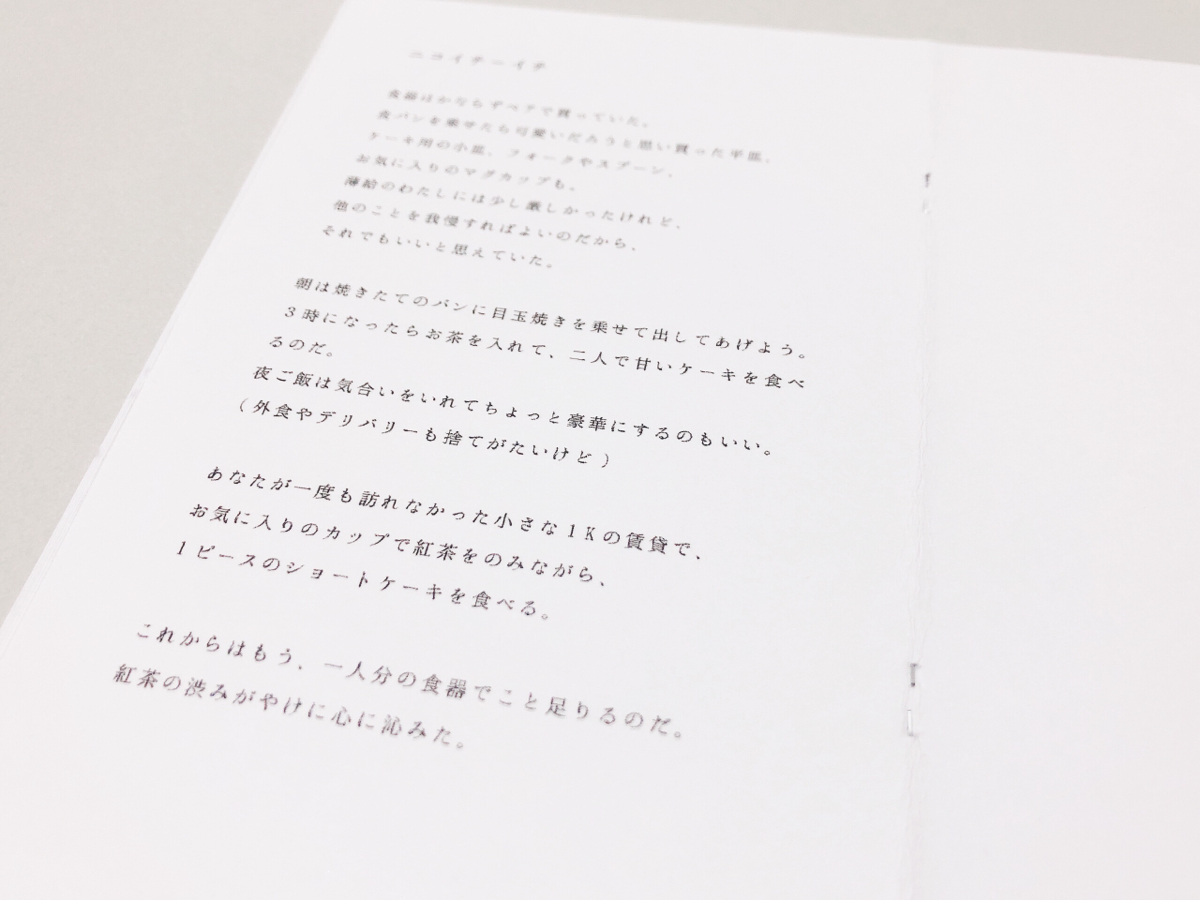 ニコイチーイチ
食器はかならずペアで買っていた。
食パンを乗せたら可愛いだろうと思い買った平皿、
ケーキ用の小皿、フォークやスプーン、
お気に入りのマグカップも。
薄給のわたしには少し厳しかったけれど、
他のことを我慢すればよいのだから、
それでもいいと思えていた。
朝は焼きたてのパンに目玉焼きを乗せて出してあげよう。
3時になったらお茶を入れて、二人で甘いケーキを食べ
るのだ。
夜ご飯は気合いをいれてちょっと豪華にするのもいい。
（外食やデリバリーも捨てがたいけど）
あなたが一度も訪れなかった小さな1Kの賃貸で、
お気に入りのカップで紅茶をのみながら、
1ピースのショートケーキを食べる。
これからはもう、一人分の食器でこと足りるのだ。
紅茶の渋みがやけに心に沁みた。